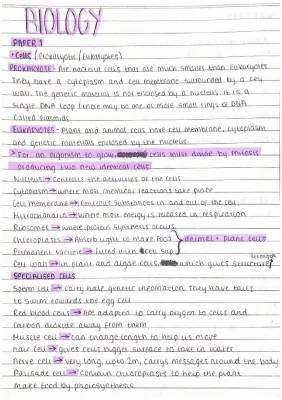 BIOLOGY
PAPER 1
• Cells (Prokaryotic / Eukaryotes)
PROKARYOTE - Are bacteria cells that are much smaller than Eukaryotes
They have a cytoplasm and cell membrane surrounded by a cell
wall. The genetic material is not enclosed by a nucleus. It is a
single DNA loop (there may be one or more small rings of DNA
called plasmids.
EUKARYOTES - Plant and animal cells have cell membrane, cytoplasm
and genetic materials enclosed by the nucleus
• For an organism to grow cells must divide by mitosis
producing two new identical cells
Nucleus → controls the activities of the cells
Cytoplasm → where most chemical reactions take place
Cell membrane → controls substances in and out of the cell
Mitochondria → where most energy is released in respiration
Ribosomes → where protein synthesis occurs
Chloroplasts → Absorb light to make food } animal + plant cells
Permanent vacuole → filled with cell sap
Cell wall → in plant and algae cells, which gives structure strength
SPECIALISED CELLS
Sperm cell → carry half genetic information. They have tails
to swim towards the egg cell
Red blood cells → Are adapted to carry oxygen to cells and
carbon dioxide away from them
Muscle cell → can change length to help us move
hair cell → gives cells bigger surface to take in water
Nerve cell → very long, upto 2m, carrys messages around the body
Palisade cell → Contain chloroplasts to help the plant
make food by photosynthesis